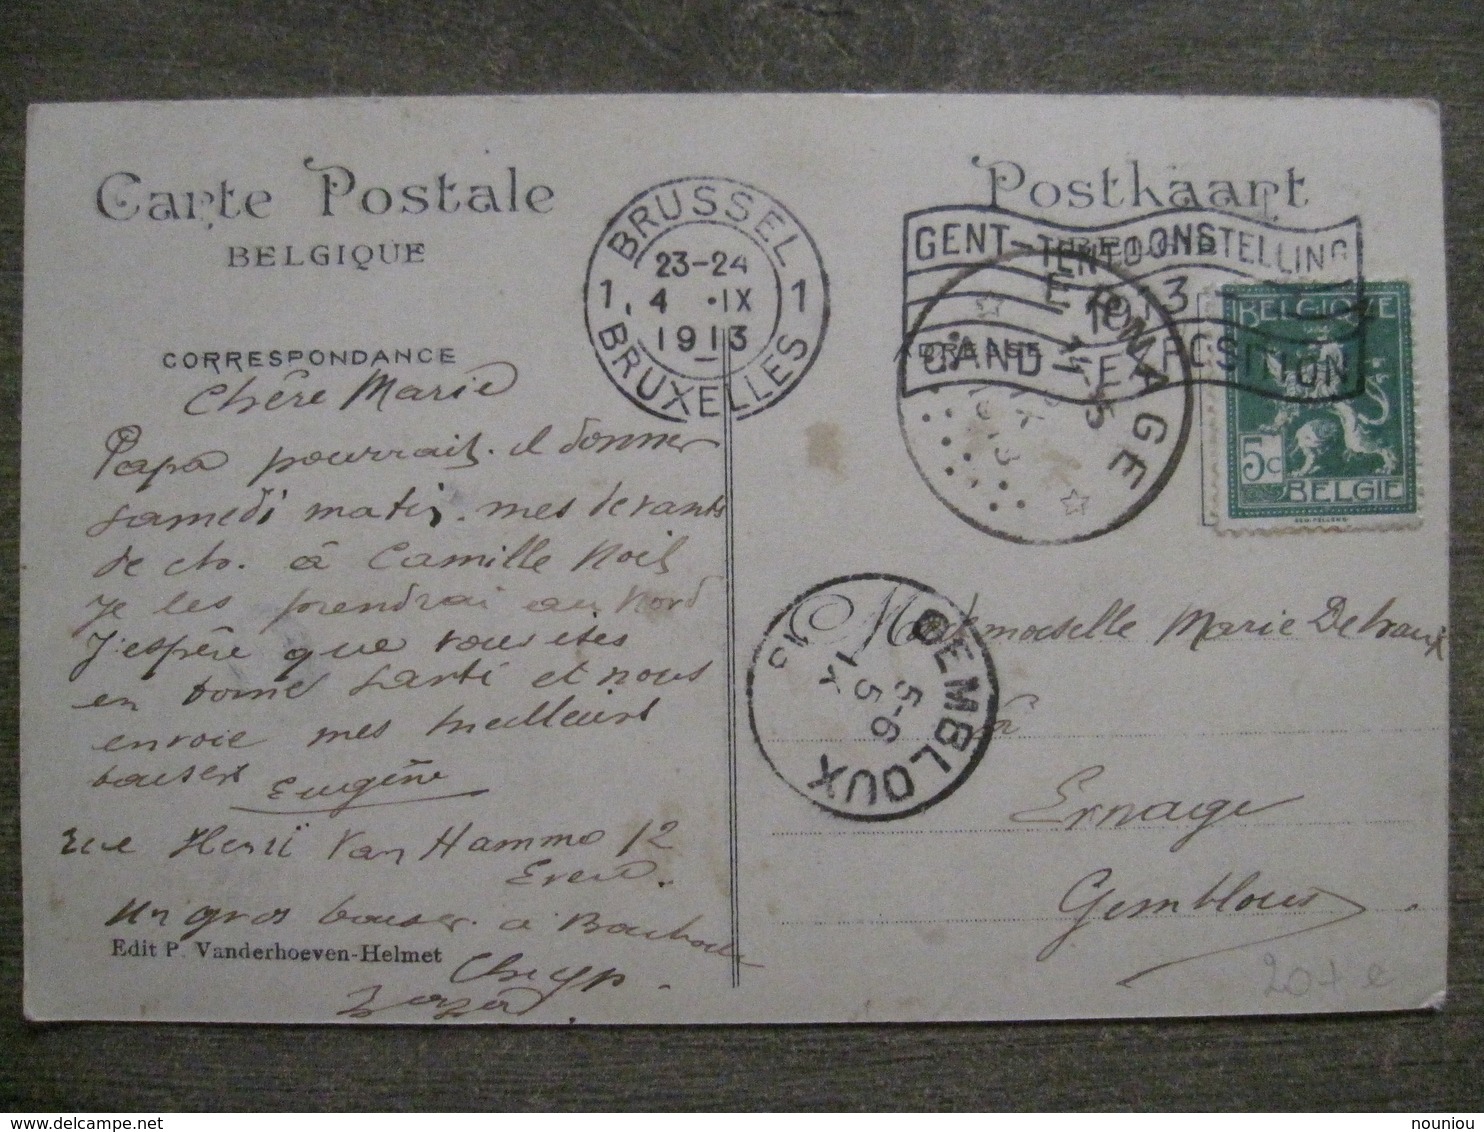 Carte Postale
BELGIQUE
CORRESPONDANCE
Chère Marie
Papa pourrait-il donner
samedi matin mes devants
de ch. à Camille Noël
Je les prendrai au Nord
J'espère que vous êtes
en bonne santé et nous
envoie mes meilleurs
baisers Eugène
rue Henri Van Hamme 12
Evere.
Un gros baiser à
Edit P. Vanderhoeven-Helmet
BRUSSEL
23-24
1 4 IX 1
1913
BRUXELLES
Postkaart
GENT-TENTOONSTELLING
1913
GAND-EXPOSITION
ERNAGE
BELGIQUE
5c
BELGIE
GEMBLOUX
5-6
5
IX
13
Mademoiselle Marie
à
Ernage
Gembloux
204 e
nouniou